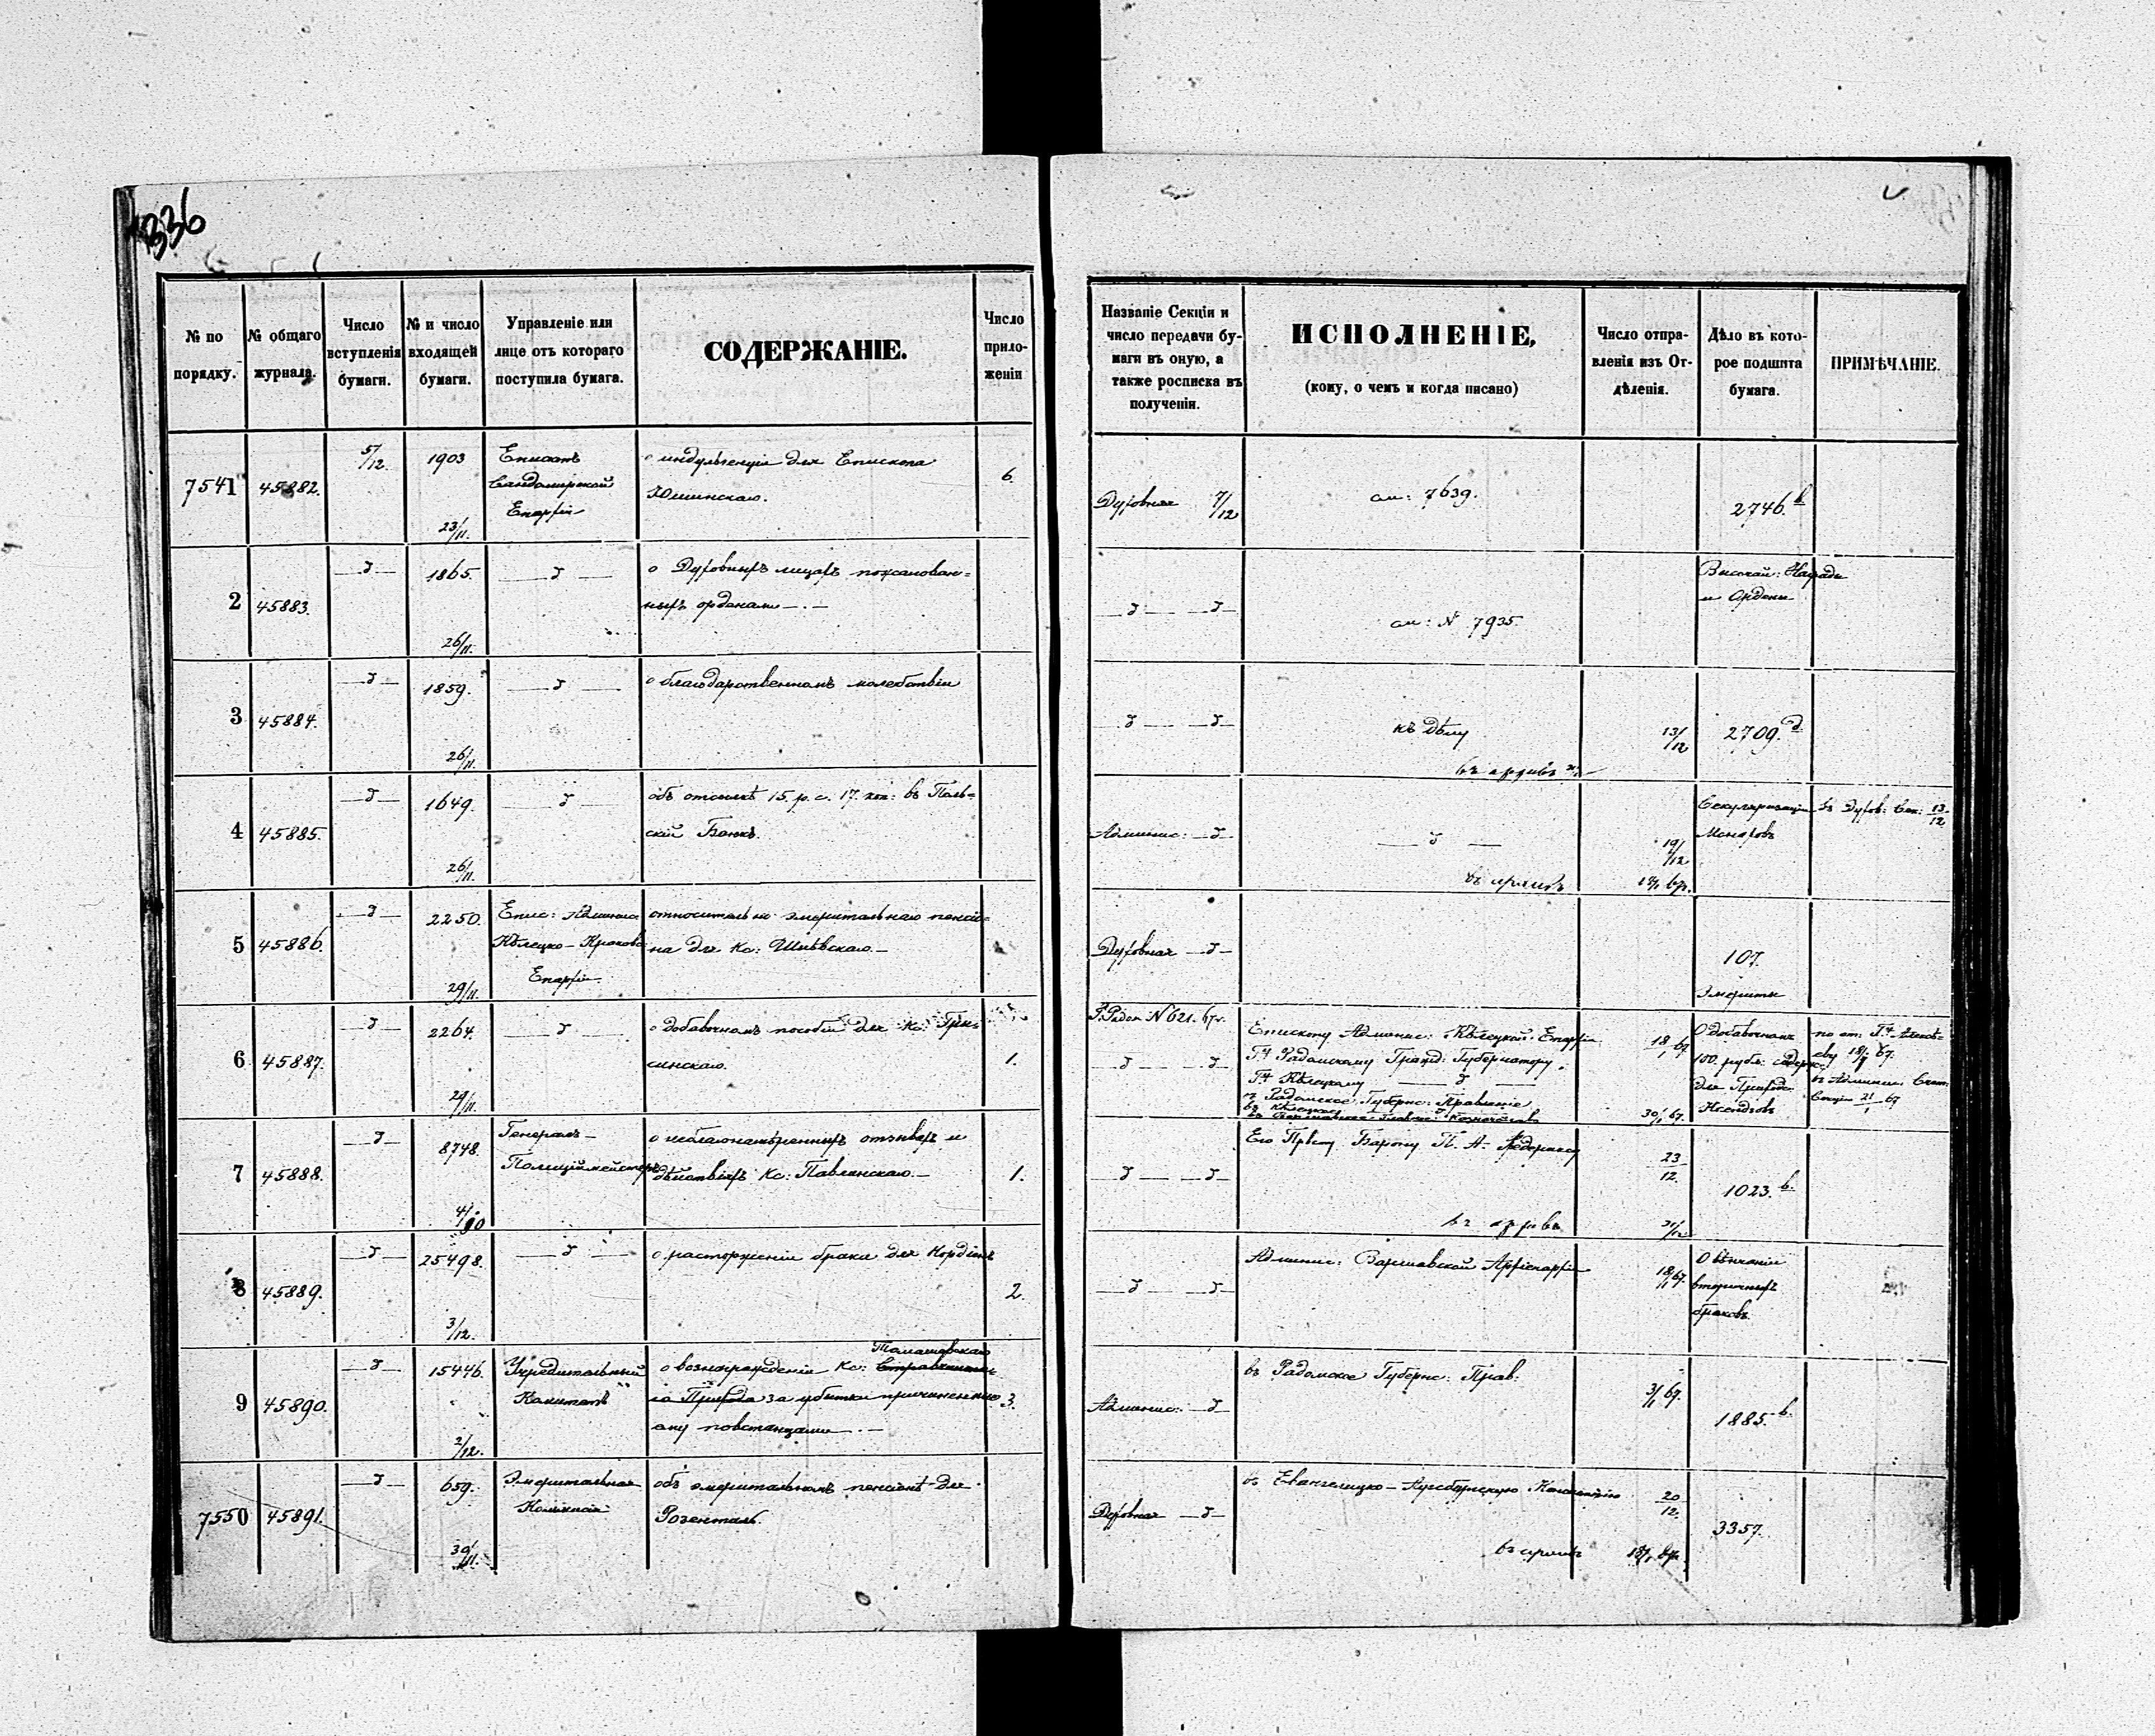 336
№ по порядку.
№ общаго журнала.
Число вступленія бумаги.
№ и число входящей бумаги.
Управленіе или лице отъ котораго поступила бумага.
СОДЕРЖАНІЕ.
Число приложеніи
Названіе Секціи и число передачи бумаги въ оную, а также росписка въ полученіи.
ИСПОЛНЕНІЕ,
(кому, о чемъ и когда писано)
Число отправленія изъ Отдѣленія.
Дѣло въ которое подшита бумага.
ПРИМѢЧАНІЕ.
7541 45882. 5/12. 1903 23/11.
Сандомирской
Епархіи
о индульгенціи для Епископа
Юшинскаго.
6.
Духовная 7/12
см: 7639.
2746.в
2 45883. д 1865. 26/11. д
о Духовныхъ лицахъ пожалован=
ныхъ орденами
д д
см: № 7935.
Высочай: Награды
и Ордены
3 45884. д 1859. 26/11. д
о благодарственномъ молебствіи
д д
къ дѣлу
13/12
2709.д
въ архивъ
4 45885. д 1649. 26/11. д
объ отсылкѣ 15. р. с. 17. коп: въ Поль=
скій Банкъ.
Админис: д
д
19/12
въ архивъ
Секуляризаціи
Монаховъ
въ Духов: Сек: 13/12
5 45886. д 2250. 29/11.
Епис: Админис
Кѣлецко-Краковс
Епархіи
относительно эмеритальнаго пенсіо=
на для Кс:
Духовная д
107.
Эмериты
6 45887. д 2264. 29/11. д
о добавочномъ пособіи для Кс:
синскаго.
1.
№ 621. 67г.
д д
Епископу Админис: Кѣлецкой Епархіи
Г-ну Радомскому Гражд: Губернатору
Г-ну Кѣлецкому д
въ Радомское Губерн: Правленіе
18/1 67
30/1 67.
О добавочныхъ
100 рубл: содерж.
для Приход:
Ксендзовъ
7 45888. д 8748.
Генералъ-
Полиціймейстеръ
о неблагонамѣренныхъ отзывахъ и
дѣйствіяхъ Кс: Павлинскаго.
1.
д д
Его Прв-ву Барону П. А. Фредериксу
23/12.
1023.в
въ архивъ
8 45889. д 25498. 3/12. д
о расторженіи брака для
2.
д д
Админис: Варшавской Архіепархіи
18/1 67.
О вѣнчаніи
вторичныхъ
браковъ.
9 45890. д 15446. 2/12.
Учредительный
Комитетъ
о вознагражденіи Кс:
за убытки причиненные
ему повстанцами
3.
Админис: д
въ Радомское Губерн: Прав:
3/1 67.
1885.в
7550 45891. д 659. 30/11.
Эмеритальная
Комиссія
объ эмеритальномъ пенсіонѣ для
Розенталь.
Духовная д
въ Евангелицко-Аугсбургскую Консисторію
20/12.
3357.
въ архивъ